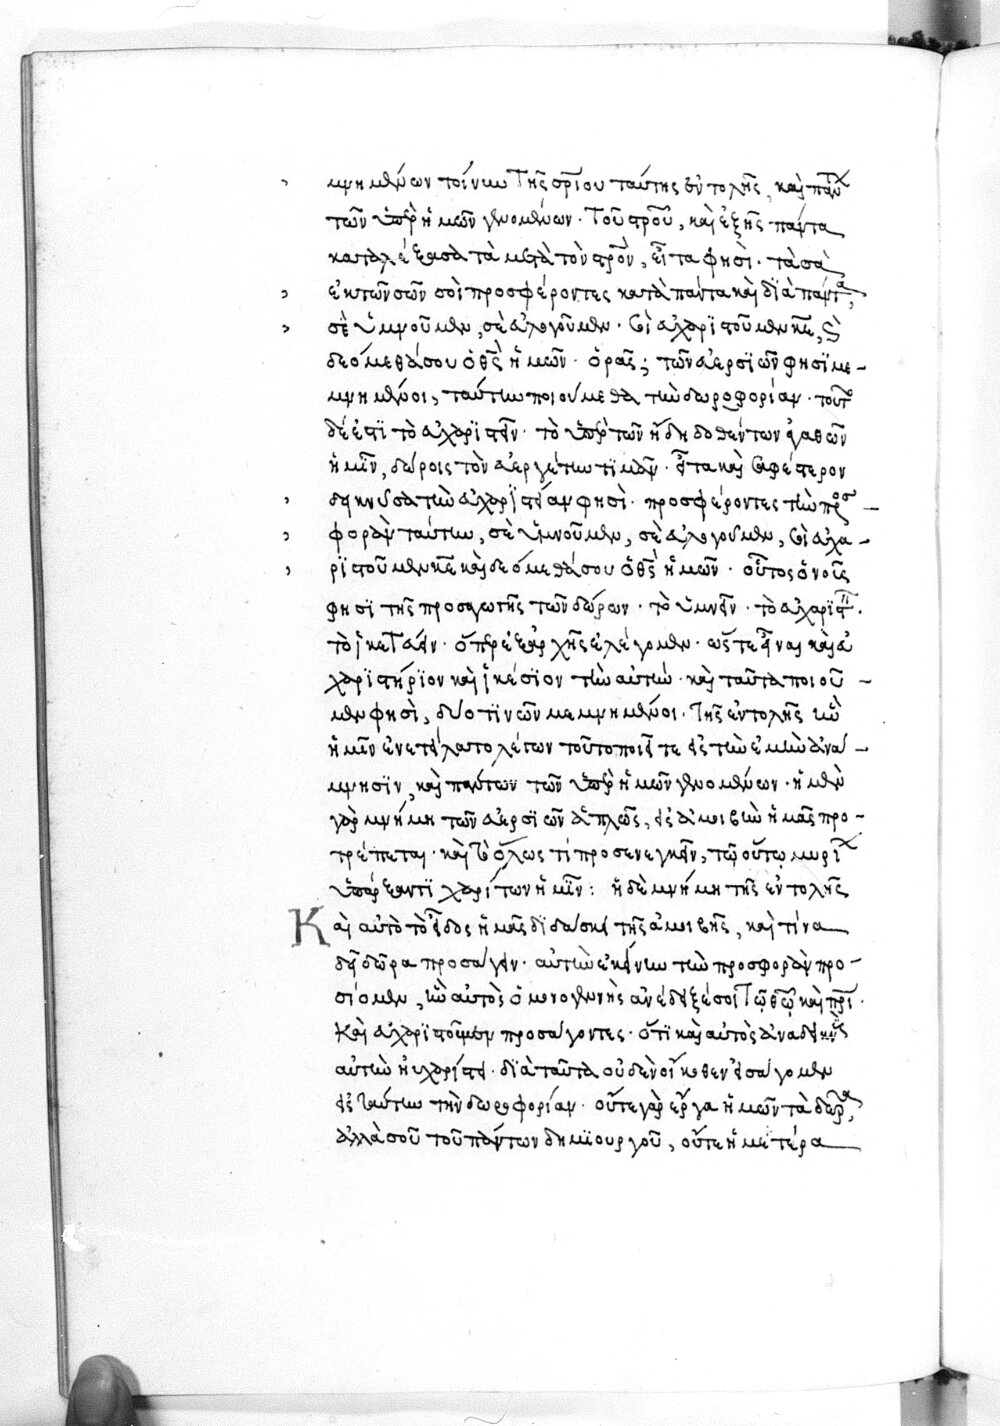 μνημένων τοίνυν τῆς σ̅ρίου ταύτης ἐντολῆς, καὶ πάντ
τῶν ὑπὲρ ἡμῶν γενομένων· τοῦ σ̅ροῦ, καὶ ἑξῆς πάντα
καταλέξασα τὰ μετὰ τὸν σ̅ρόν, εἶτα φησί· τὰ σὰ
ἐκ τῶν σῶν σοὶ προσφέροντες κατὰ πάντα καὶ διὰ πάντα,
σὲ ὑμνοῦμεν, σὲ εὐλογοῦμεν· σοὶ εὐχαριστοῦμεν κ̅ε̅, καὶ
δεόμεθά σου ὁ θ̅ς̅ ἡμῶν· ὁρᾶς; τῶν εὐεργεσιῶν φησὶ με-
μνημένοι, ταύτην ποιούμεθα τὴν δωροφορίαν· τοῦτο
δέ ἐστι τὸ εὐχαριστεῖν· τὸ ὑπὲρ τῶν ἤδη δοθέντων ἀγαθῶν
ἡμῖν, δώροις τὸν εὐεργέτην τιμᾶν· εἶτα καὶ σαφέστερον
δεικνῦσα τὴν εὐχαριστίαν φησὶ· προσφέροντες τὴν προσ-
φορὰν ταύτην, σὲ ὑμνοῦμεν, σὲ εὐλογοῦμεν, σοὶ εὐχα-
ριστοῦμεν κ̅ε̅ καὶ δεόμεθά σου ὁ θ̅ς̅ ἡμῶν· οὗτος ὁ νοῦς
φησὶ τῆς προσαγωγῆς τῶν δώρων· τὸ ὑμνεῖν· τὸ εὐχαριστεῖν·
τὸ ἱκετεύειν· ὅπερ ἐξαρχῆς ἐλέγομεν· ὥστε εἶναι καὶ εὐ
χαριστήριον καὶ ἱκέσιον τὴν αὐτήν· καὶ ταῦτα ποιοῦ-
μεν φησὶ, δυοτινῶν μεμνημένοι· τῆς ἐντολῆς ἣν
ἡμῖν ἐνετείλατο λέγων τοῦτο ποιεῖτε εἰς τὴν ἐμὴν ἀνά-
μνησιν, καὶ πάντων τῶν ὑπὲρ ἡμῶν γενομένων· ἡ μὲν
γὰρ μνήμη τῶν εὐεργεσιῶν ἁπλῶς, εἰς ἀμοιβὴν ἡμᾶς προ-
τρέπεται· καὶ τὸ ὅλως τί προσενεγκεῖν, τῷ οὕτω μυρίων
ὑπάρξαντι χαρίτων ἡμῖν: ἡ δὲ μνήμη τῆς ἐντολῆς
Καὶ αὐτὸ τὸ εἶδος ἡμᾶς διδάσκει τῆς ἀμοιβῆς, καὶ τίνα
δεῖ δῶρα προσάγειν· αὐτὴν ἐκείνην τὴν προσφορὰν προ-
σίομεν, ἣν αὐτὸς ὁ μονογενὴς ἀνέδειξέ σοι τῷ θ̅ῷ καὶ π̅ρί·
Καὶ εὐχαριστοῦμεν προσάγοντες· ὅτι καὶ αὐτὸς ἀναδεικνὺς
αὐτὴν ηὐχαρίστει· διὰ ταῦτα οὐδὲν οἴκοθεν εἰσάγομεν
εἰς ταύτην τὴν δωροφορίαν· οὔτε γὰρ ἔργα ἡμῶν τὰ δῶρα,
ἀλλὰ σοῦ τοῦ πάντων δημιουργοῦ, οὔτε ἡμετέρα